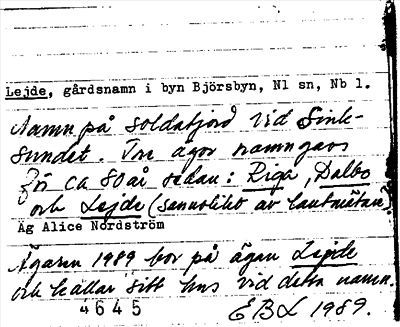 Lejde, gårdsnamn i byn Björsbyn, Nl sn, Nb l.
Namn på soldatjord vid Sink-
sundet. Tre ägor namngavs
för ca 80 år sedan: Riga, Dalbo
och Lejde (sannolikt av lantmätan)
Ag Alice Nordström
Ägaren 1989 bor på ägan Lejde
och kallar sitt hus vid detta namn.
4645
EBL 1989.